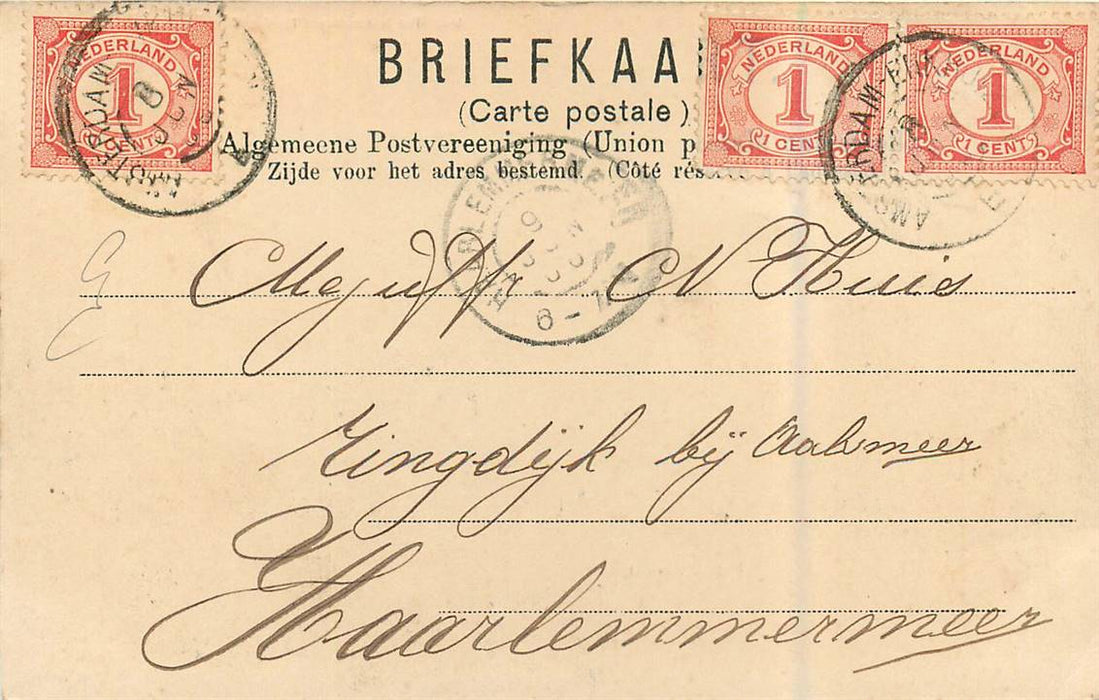 BRIEFKAA
(Carte postale)
Algemeene Postvereeniging (Union p
Zijde voor het adres bestemd. (Côté rés
NEDERLAND
1
1 CENT
NEDERLAND
1
1 CENT
NEDERLAND
1
1 CENT
AMSTERDAM
AMSTERDAM
HAARLEMMERMEER
Mejuffr N Huis
Ringdijk bij Aalsmeer
Haarlemmermeer